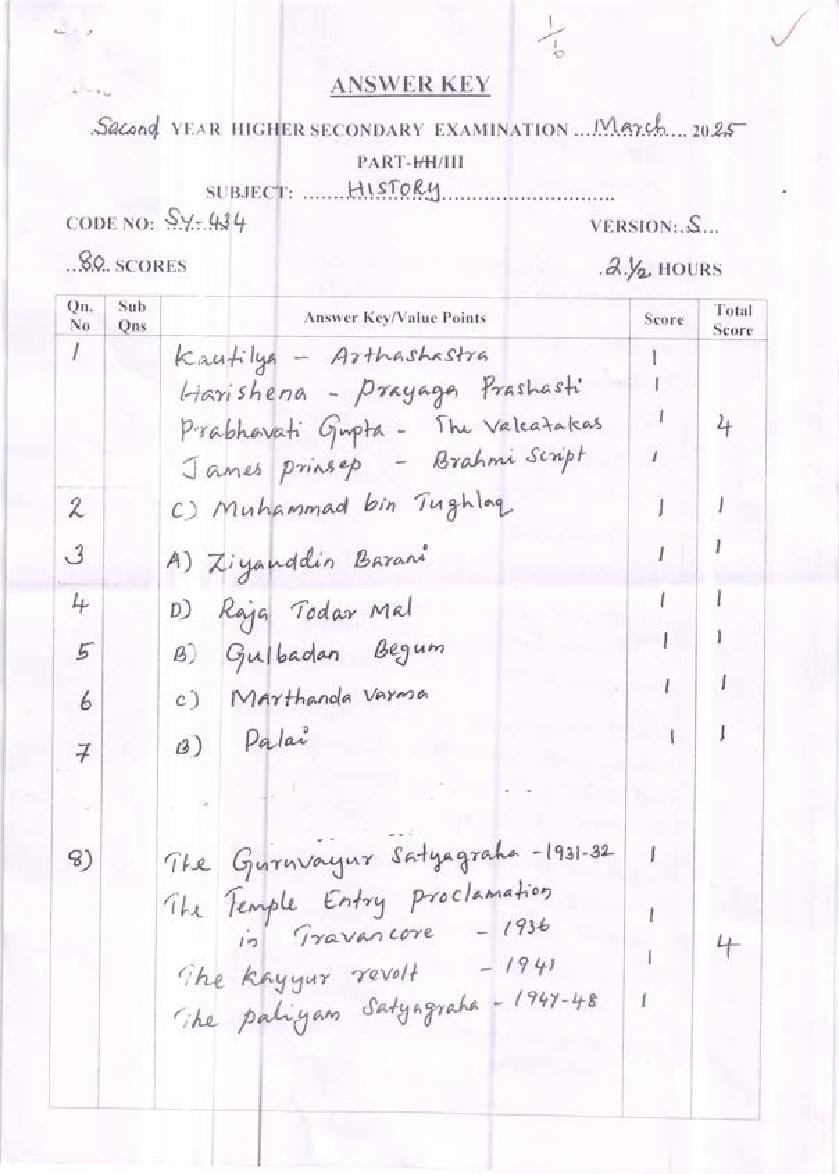 1/10
ANSWER KEY
Second YEAR HIGHER SECONDARY EXAMINATION ...March... 2025
PART-I/II/III
SUBJECT: HISTORY
CODE NO: SY-434 VERSION: S
80 SCORES 2½ HOURS
Qn. No Sub Qns Answer Key/Value Points Score Total Score
1 Kautilya - Arthashastra 1
Harishena - Prayaga Prashasti 1
Prabhavati Gupta - The Vakatakas 1 4
James Prinsep - Brahmi Script 1
2 C) Muhammad bin Tughlaq 1 1
3 A) Ziyauddin Barani 1 1
4 D) Raja Todar Mal 1 1
5 B) Gulbadan Begum 1 1
6 C) Marthanda Varma 1 1
7 B) Palai 1 1
8) The Guruvayur Satyagraha - 1931-32 1
The Temple Entry Proclamation
in Travancore - 1936 1
The Kayyur revolt - 1941 1 4
The paliyam Satyagraha - 1947-48 1